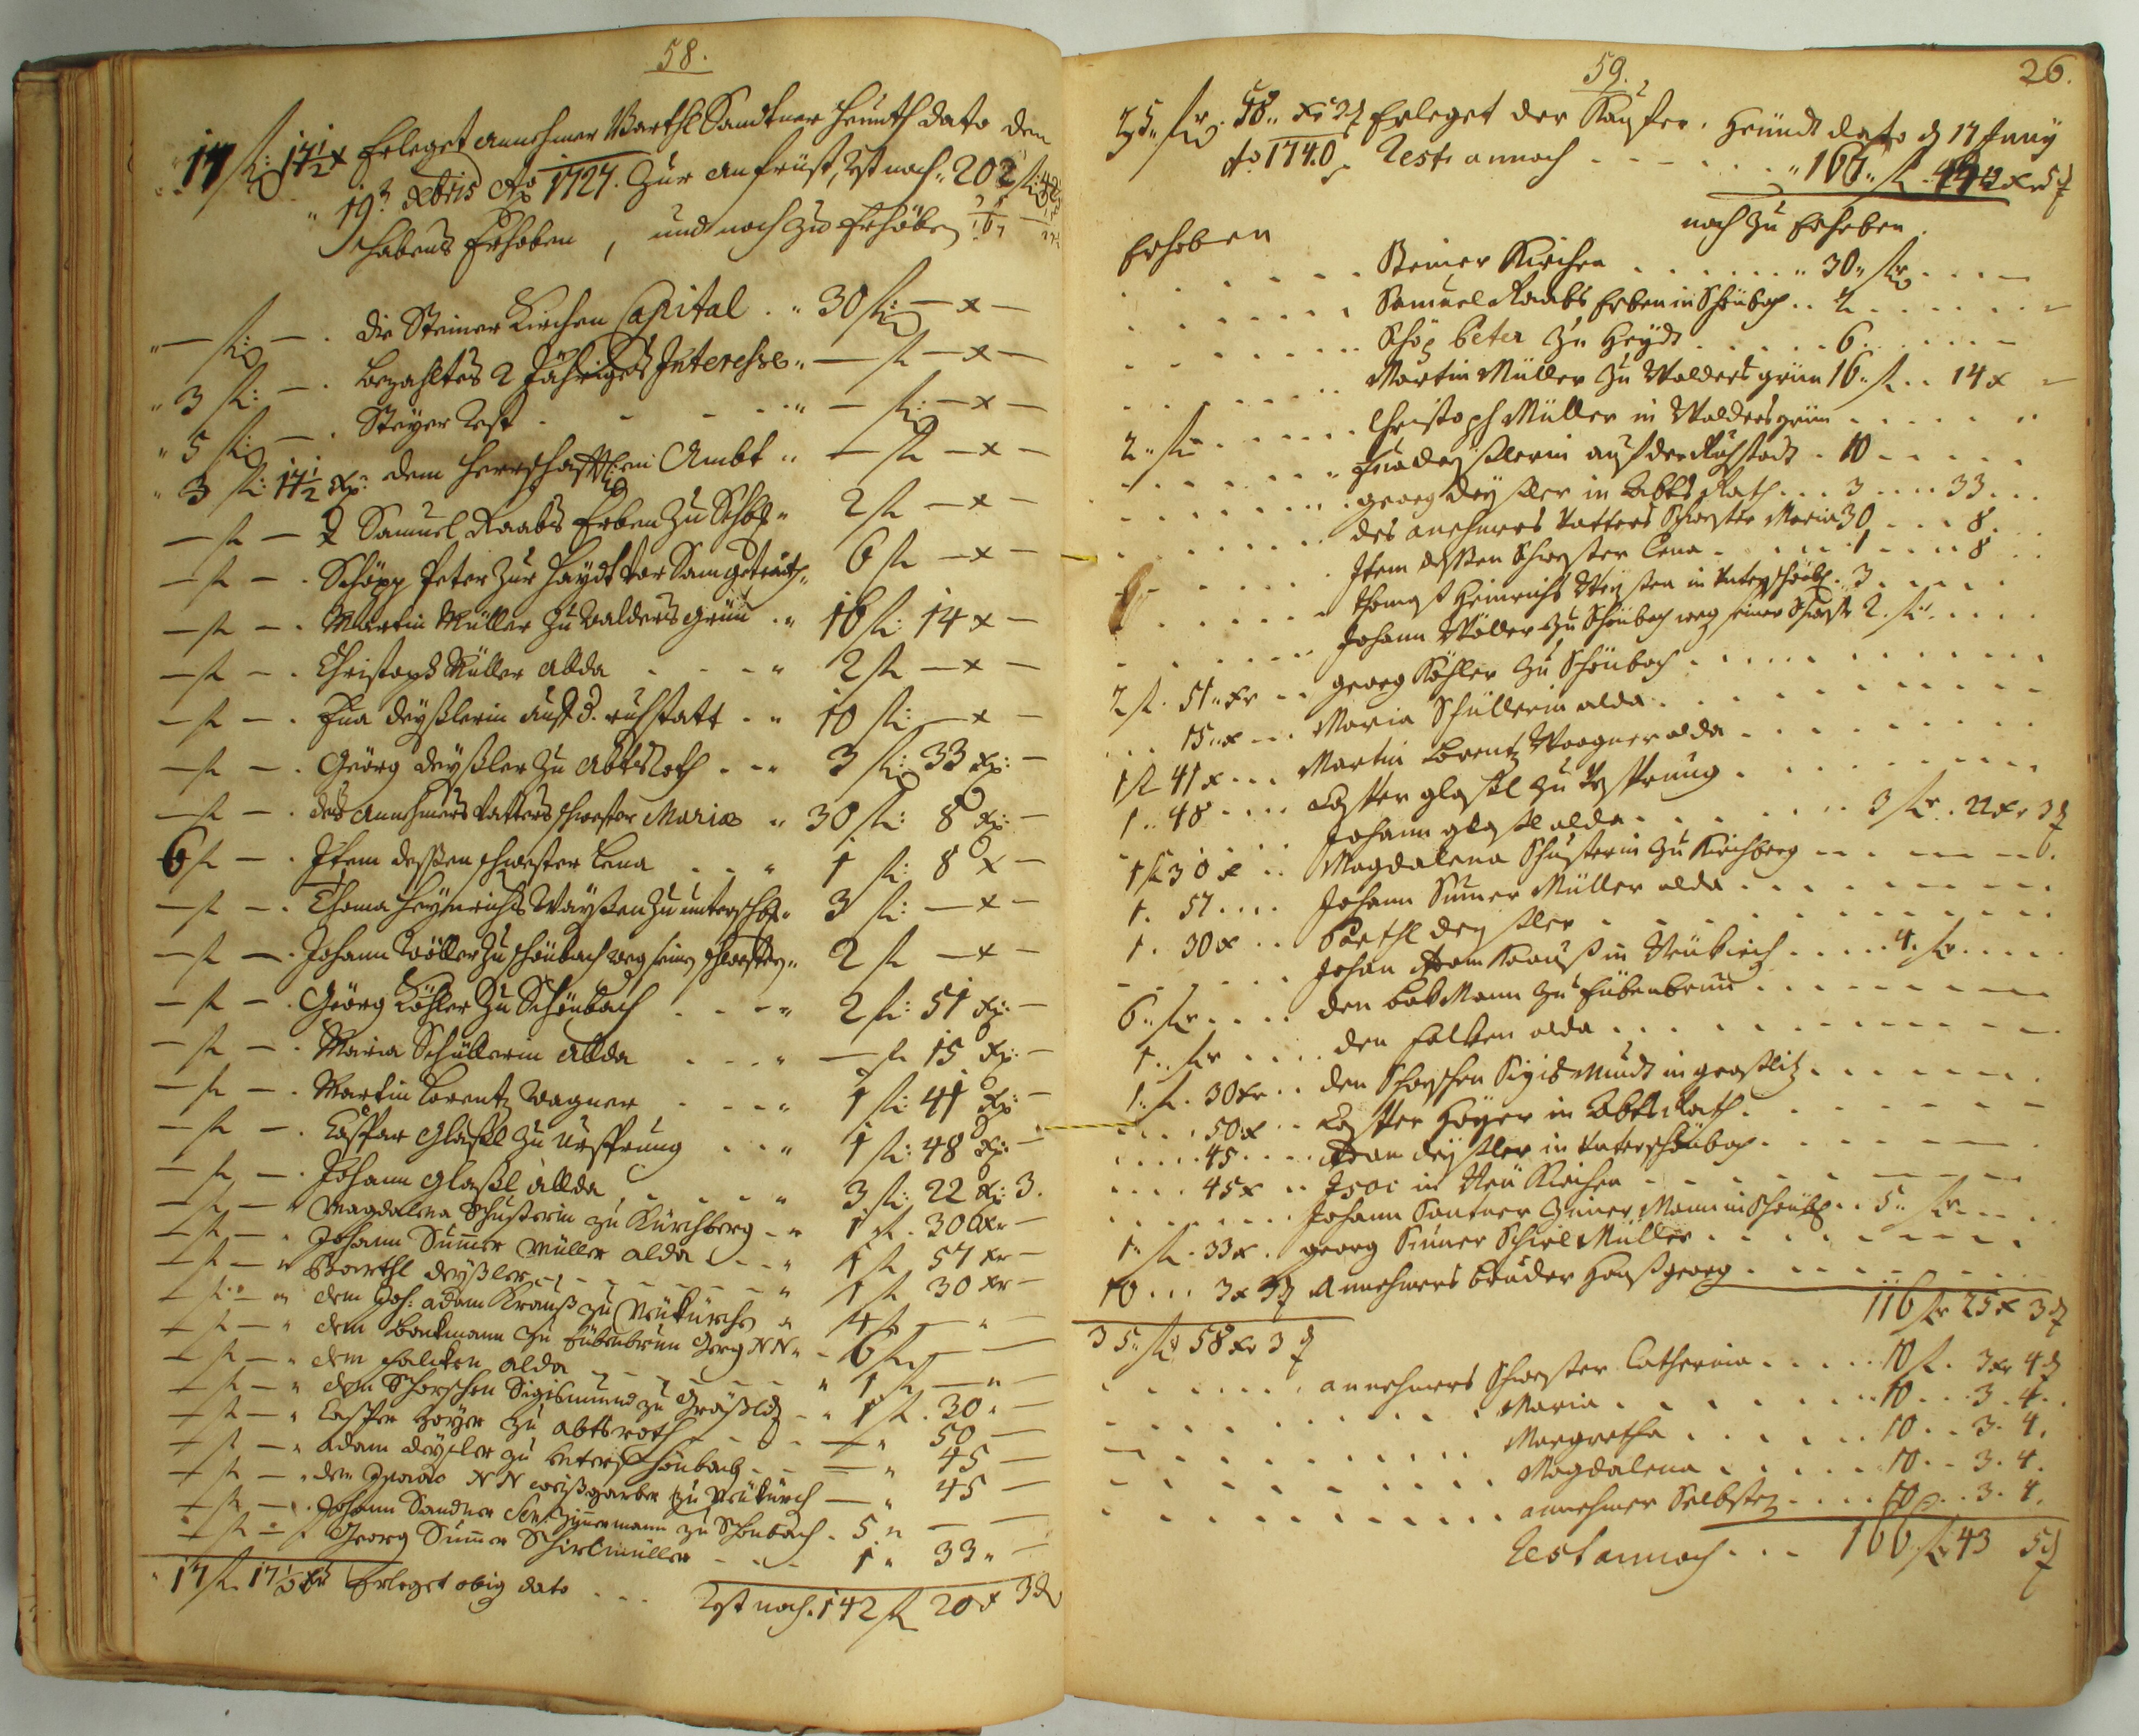 58.
17 fl: 17½ x Erleget annehmer Barthl Sandtner heünth dato den
19 Xbris Ao 1727. Zur anfrüst, Rest noch 202 fl:
habens Erhoben, und noch zu Erhöben
— fl: — . die Steiner Kirchen Capital . 30 fl: — x —
3 fl: — . bezahltes 2 Jähriges Interesse — fl — x —
5 fl: — . Steyer Rest . — fl: — x —
3 fl: 17½ Xr: dem Herrschafftl: en Ambt — fl — x —
— fl — x Samuel Raabs Erben Zu Schb 2 fl — x —
— fl — . Schöpp Peter Zur Haydt vor Sam getraith 6 fl — x —
— fl — . Martin Müller Zu Waldersgrün . 16 fl: 14 x —
— fl — . Christoph Müller allda 2 fl — x —
— fl — . deyßlerin auf d. ruhstatt . 10 fl: — x —
— fl — . Geörg deyßler Zu Abtsroth . 3 fl: 33 Xr: —
— fl — . des Annehmers Vatters schwester Maria 30 fl: 8 Xr: —
6 fl — . Item dessen schwester Lena 1 fl: 8 X —
— fl — . Thoma Heynrichs Wayßen Zu unterschb 3 fl: — x —
— fl — . Johann Wöller Zu schönbach weg seiner schwester 2 fl — x —
— fl — . Geörg Köhler Zu Schönbach . 2 fl: 51 Xr: —
— fl — . Maria Schüllerin allda . — fl 15 Xr: —
— fl — . Martin Lorentz Wagner . 1 fl: 41 Xr: —
— fl — . Caspar Glaßl Zu Ursprung . 1 fl: 48 Xr: —
— fl — . Johann Glaßl allda . 3 fl: 22 Xr: 3.
— fl — Magdalena Schusterin zu Kürchberg - 1 fl. 30 Xr —
— fl — Johann Sumer Müller alda . 1 fl 57 Xr —
— fl — Barthl deyßler 1 fl 30 Xr —
— fl — dem Joh: adam Krauß zu Neükürchen 4 fl — —
— fl — dem Barkmann zu Eübenbrün Georg NN - 6 fl — —
— fl — dem Falcken alda 1 fl — —
— fl — den Schorschen Sigismund zu Graßlitz - 1 fl. 30 —
— fl — Casper Hoyer zu abtsroth — 50 —
— fl — adam deyßler zu Unterschönbach — 45 —
— fl — den Isaac NN weißgarber zu Neükürch — 45 —
— fl — Johann Sandner Zimermann zu Schönbach . 5 — —
— fl — Georg Sumer Schirlmüller 1 33 —
17 fl 17½ Xr Erleget obig dato . . . Rest noch . 142 fl 20 x 3 d
59.
26.
35 fl. 58 Xr 3 d Erleget der Käufer. Heündt dato d 17 Juny
Ao 1740. Resti annoch . . . 166 fl 43 Xr 5 d
Erhoben noch zu Erheben.
Steiner Kirchen . . . . . . 30 fl . . . —
Samuel Raabs Erben in Schönbach . . 2 . . . . . —
Schöp beter zu Heydt . . . . . 6 . . . . —
Martin Müller zu Waldersgrün 16 fl . . 14 x —
2 fl . . . . . Christoph Müller in Waldersgrün . . . . . .
deyßlerin auf der Ruhstadt . 10 . . . . .
georg deyßler in Abtsroth . . . 3 . . . . 33 . . .
des anehmers Vatters Schwester Maria 30 . . . 8 .
Item dessen Schwester Lena . . . . 1 . . . . 8 . .
Thomaß Heinrichs Weyßen in unterschönb. 3 . . . . .
Johann Wöller zu Schönbach weg seiner Schwest 2 fl. . . . .
2 fl. 51 Xr . . georg Köhler zu Schönbach . . . . . . . . .
. . . 15 x . . . Maria Schüllerin alda . . . . . . . . . .
1 fl 41 x . . . Martin Lorentz Waagner alda . . . . . . . .
1 . . 48 . . . . Casper glaßl zu Urspruug . . . . . . . . .
Johann glaßl alda . . . . . . . 3 fl . 22 Xr 3 d
1 fl 30 x . . Magdalena Schusterin zu Kirchberg . . . . . .
1 . 57 . . . . Johann Sumer Müller alda . . . . . . . . .
1 . 30 x . . Barthl deyßler . . . . . . . . . . . .
. . . . . . Johan Adam Krauß in Neükirch . . . . . 4 fl . . . .
6 fl . . . . den bakMann zu Eübenbrun . . . . . . . . .
1 . fl . . . . den Falken alda . . . . . . . . . . . .
1 fl. 30 Xr . . den Schorschen Sigismundt in graßlitz . . . . . .
. . . . 50 x . . Casper Hoyer in Abtsroth . . . . . . . .
. . . . . 45 . . . . Adam deyßler in Unterschönbach . . . . . . .
. . . . 45 x . . Isac in Neü Kirchen . . . . . . . . .
. . . . . . . Johann Santner Zimer Mann in Schönb . . 5 fl . . . .
1 fl. 33 x . georg Sumer Schirl Müller . . . . . . . . .
10 . . . 3 x 3 d Annehmers bruder Hanßgeorg . . . . . .
35 fl 58 Xr 3 d
116 fl 25 x 3 d
. . . . . . annehmers Schwester Catherina . . . . . 10 fl. 3 Xr 4 d
Maria . . . . . . . 10 . . . 3 . 4 .
Margretha . . . . . . 10 . . 3 . 4 .
Magdalena . . . . . 10 . . 3 . 4 .
annehmer Selbsten . . . . 10 . . 3 . 4 .
Rest annoch . . . 166 fl 43 5 d